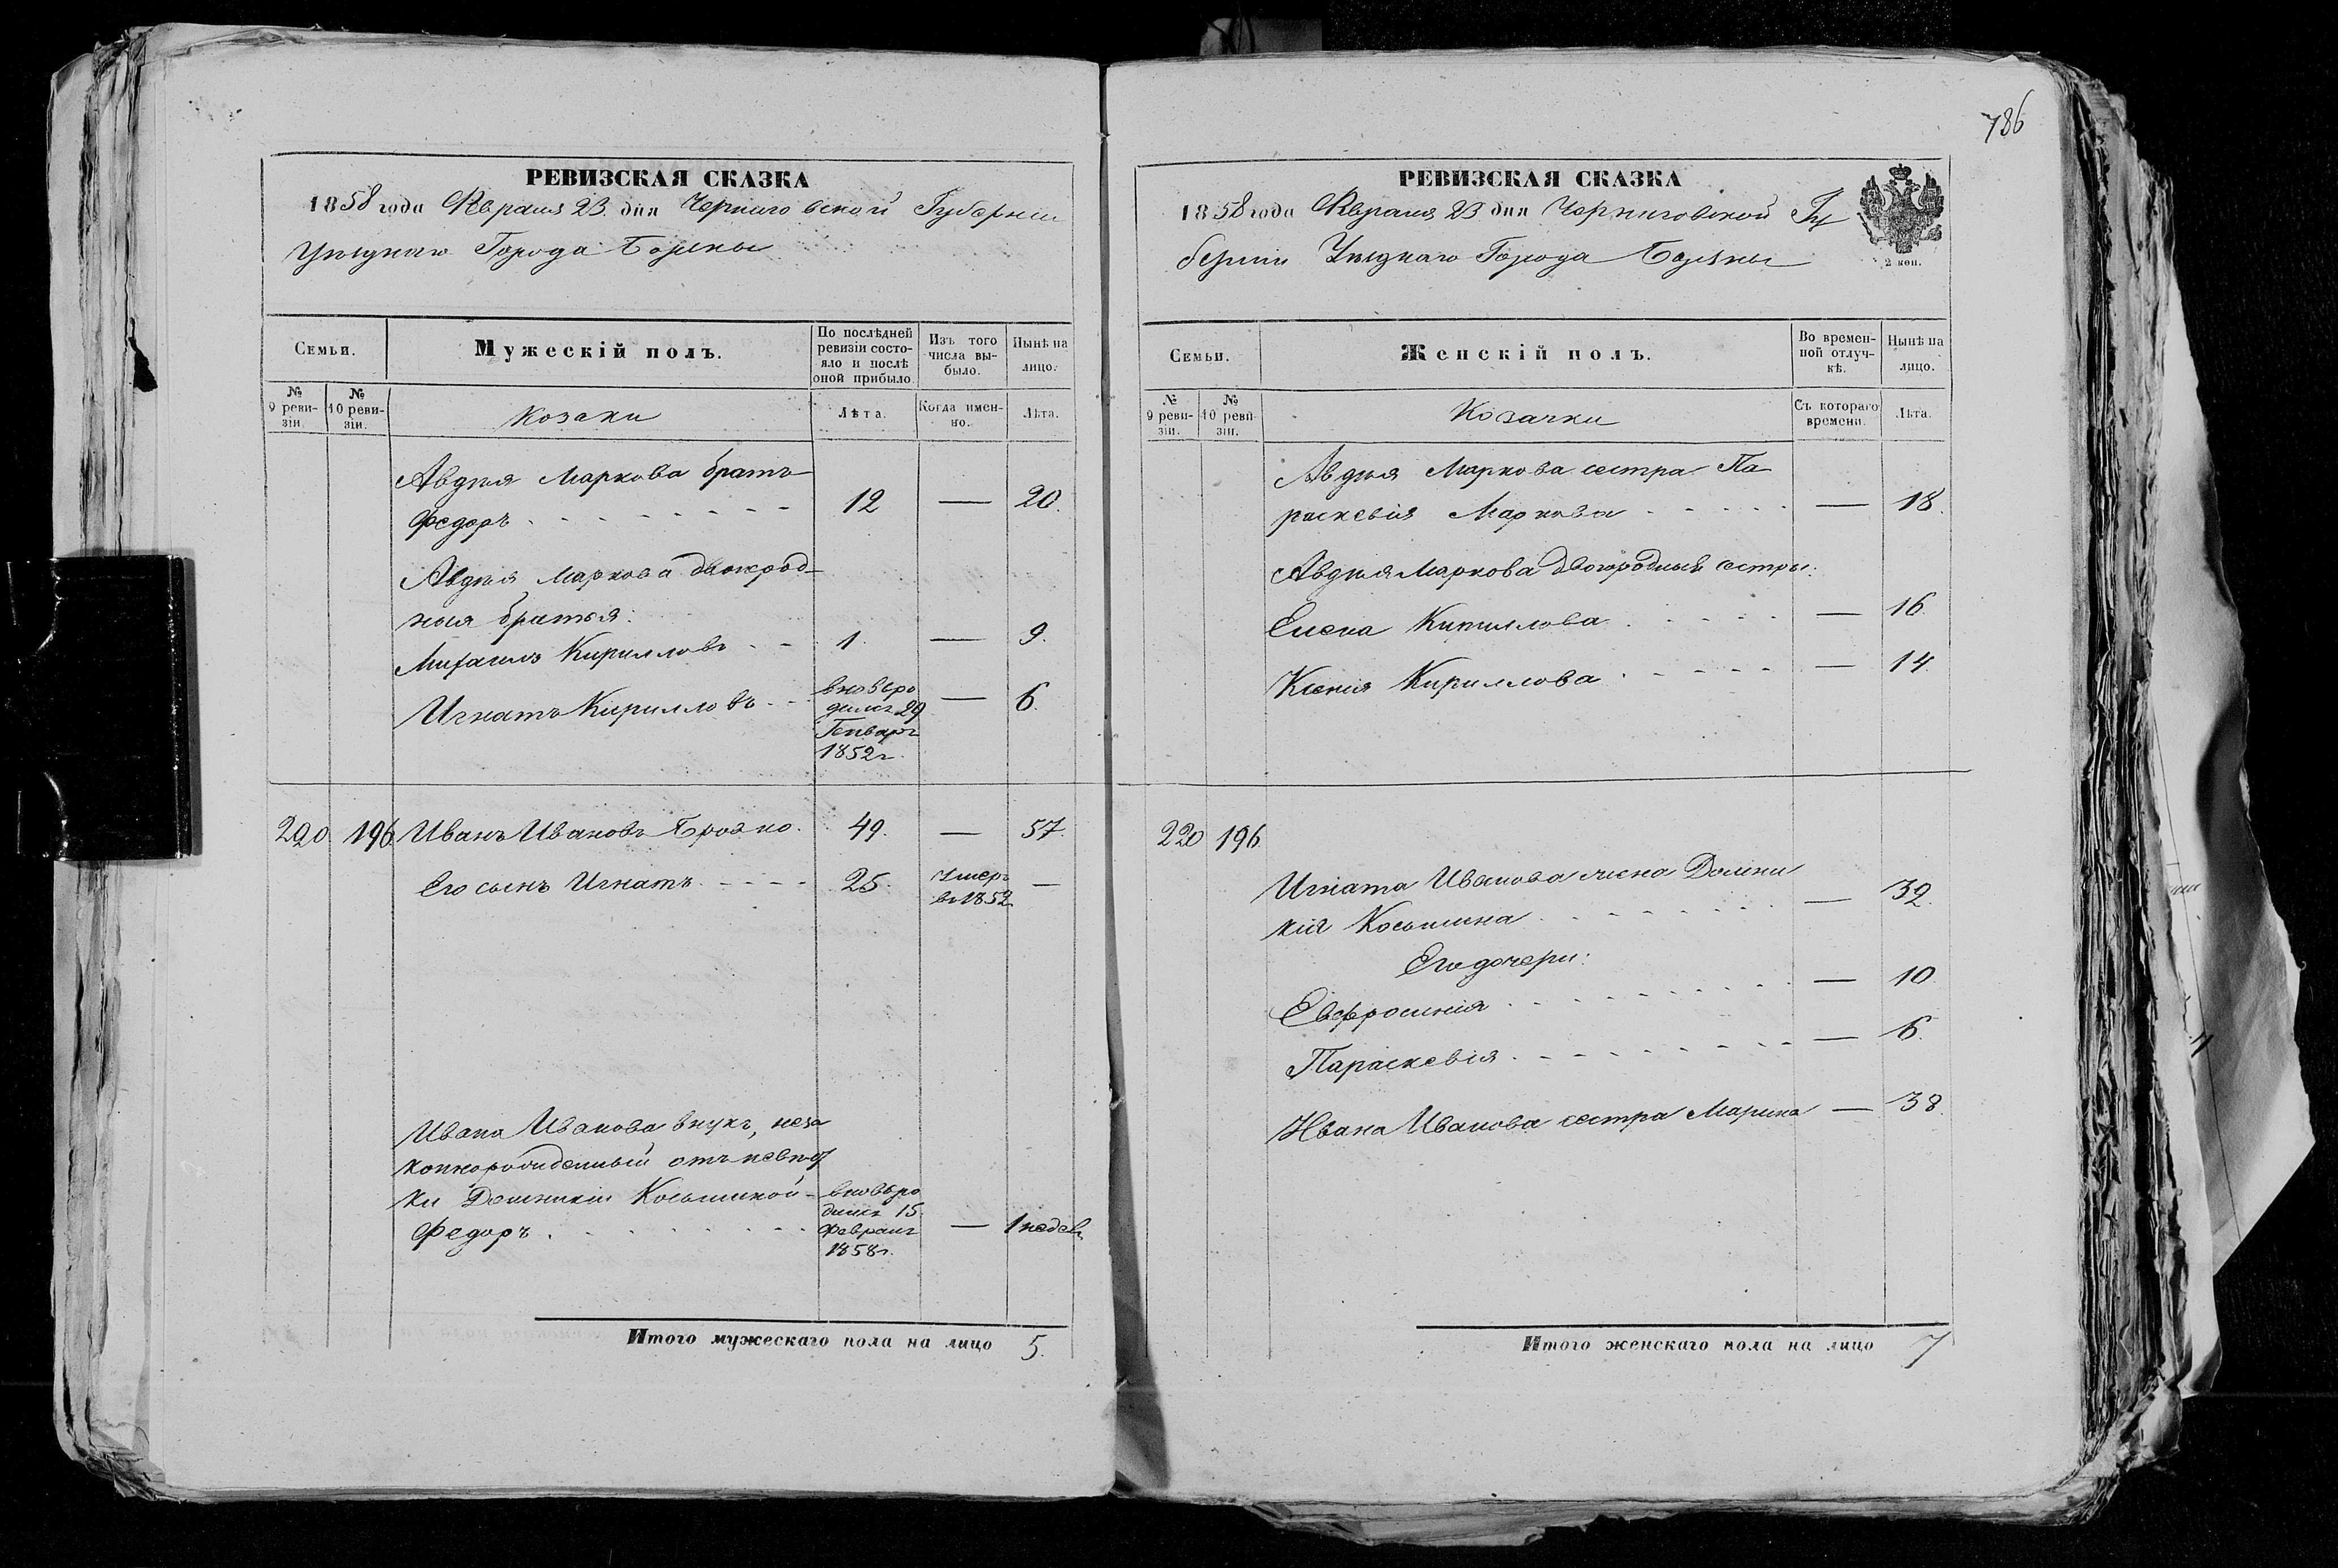 786
РЕВИЗСКАЯ СКАЗКА
1858 года Февраля 23 дня Черниговской Губернии
Уѣзднаго Города Борзны
Семьи.
Мужескій полъ.
По послѣдней ревизіи состо-
яло и послѣ
оной прибыло.
Изъ того
числа вы-
было.
Нынѣ на
лицо.
№
9 реви-
зіи.
№
10 реви-
зіи.
Козаки
Лѣта.
Когда имен-
но.
Лѣта.
Авдѣя Маркова братъ
Федоръ 12 — 20.
Авдѣя Маркова двоюрод-
ныя братья:
Михаилъ Кирилловъ 1. — 9.
Игнатъ Кирилловъ вновьро — 6.
дился 29
Генваря
1852 г.
220 196 Иванъ Ивановъ 49. — 57.
Его сынъ Игнатъ 25. умеръ —
въ 1852
Ивана Иванова внукъ, неза
коннорожденный отъ невѣст
ки Домникіи Косьминой вновьро
дился 15
Федоръ Февраля — 1 недѣл
1858 г.
Итого мужескаго пола на лицо 5.
РЕВИЗСКАЯ СКАЗКА
1858 года Февраля 23 дня Черниговской Гу
берніи Уѣзднаго Города Борзны
2 коп.
Семьи.
Женскій полъ.
Во времен-
ной отлуч-
кѣ.
Нынѣ на
лицо.
№
9 реви-
зіи.
№
10 реви-
зіи.
Козачки
Съ котораго
времени.
Лѣта.
Авдѣя Маркова сестра Па
раскевія Маркова — 18.
Авдѣя Маркова двоюродныя сестры:
Елена Кириллова — 16.
Ксенія Кириллова — 14.
220 196
Игната Иванова жена Домни
кія Косьмина — 32.
Его дочери:
Евфросинія — 10.
Параскевія — 6.
Ивана Иванова сестра Марина — 38.
Итого женскаго пола на лицо 7